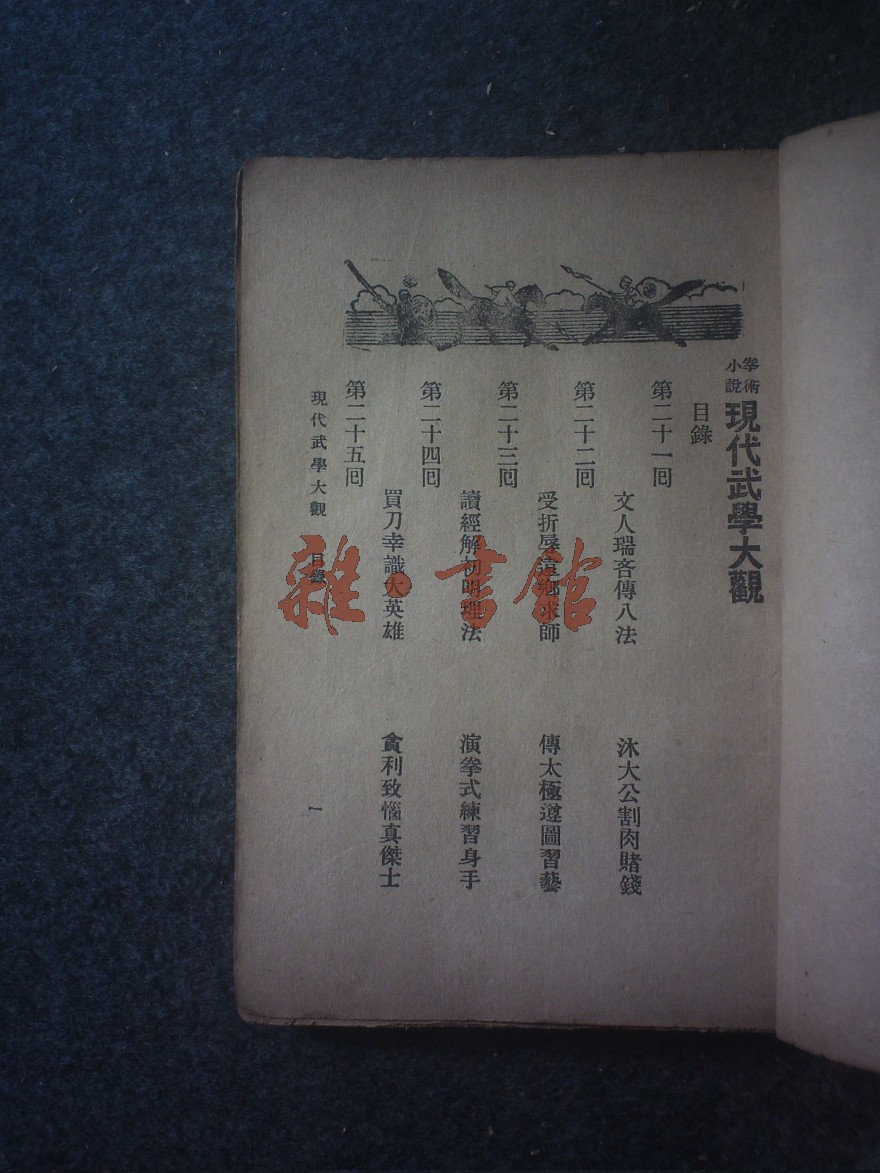 拳術小說 現代武學大觀
目錄
第二十一回
文人瑞吝傳八法 沐大公割肉賭錢
第二十二回
受折辱遠鄉求師 傳太極遵圖習藝
第二十三回
讀經解初明理法 演拳式練習身手
第二十四回
買刀幸識大英雄 貪利致惱真傑士
第二十五回
現代武學大觀 目錄 一
雜·書館